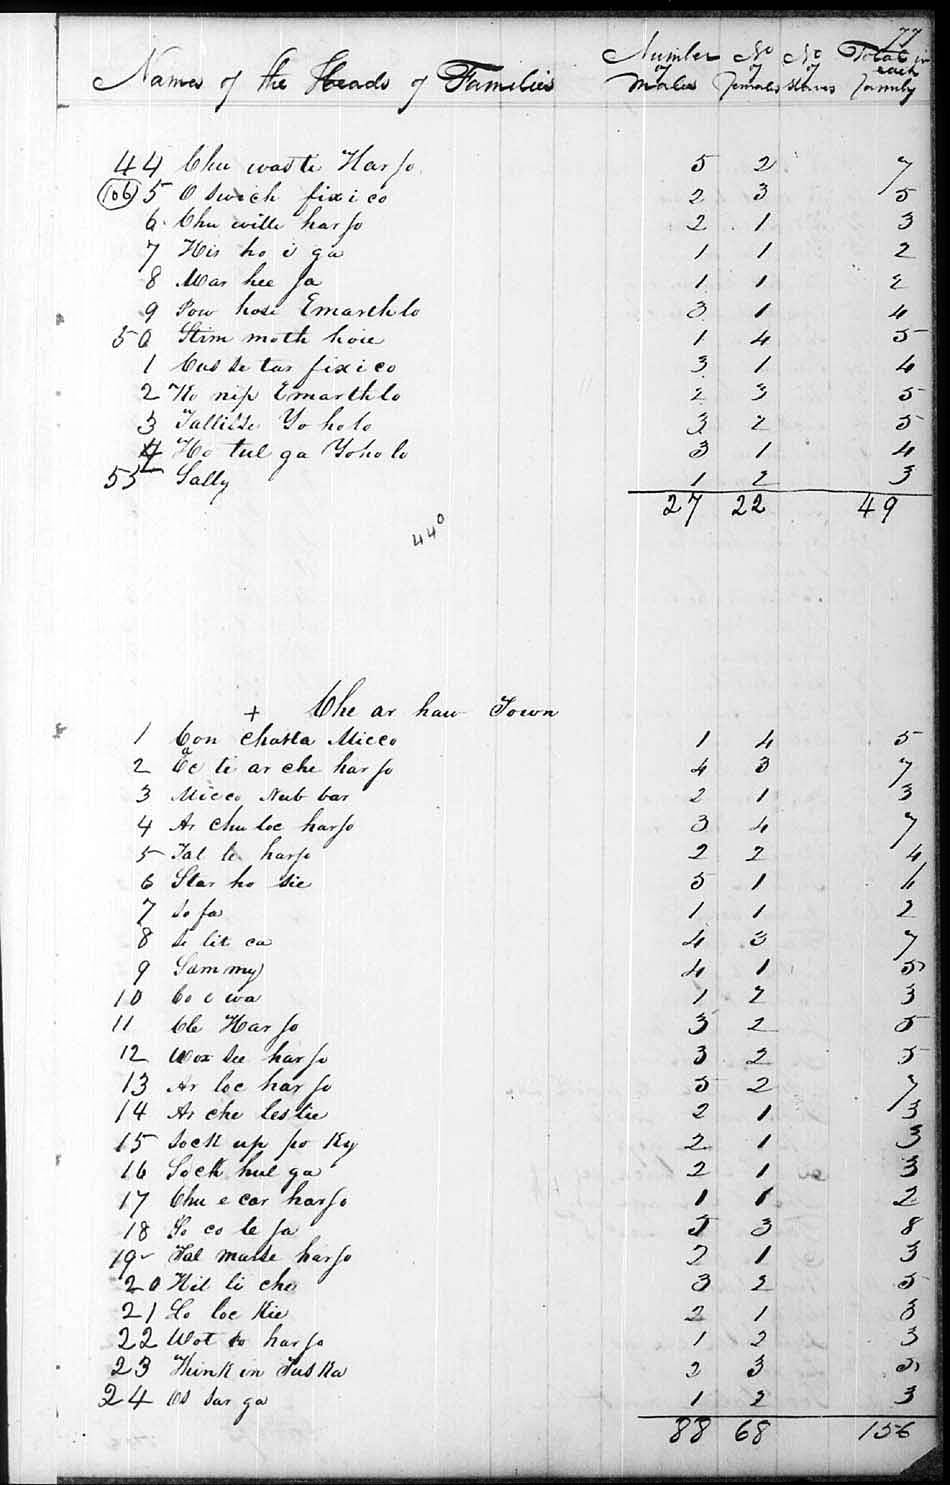 77
Names of the Heads of Families Number of Males No of females No of slaves Total in each family
44 Chu waste Harjo 5 2 7
(106) 5 O swich fixico 2 3 5
6 Chu wille harjo 2 1 3
7 His ho i ga 1 1 2
8 Mar hee ja 1 1 2
9 Pow hose Emarthlo 3 1 4
50 Stim moth hoie 1 4 5
1 Cus se tas fixico 3 1 4
2 Ko nip Emarthlo 2 3 5
3 Tallisse Yoholo 3 2 5
4 Ho tul ga Yoholo 3 1 4
55 Sally 1 2 3
27 22 49
440
+ Che ar haw Town
1 Con chatta Micco 1 4 5
2 Co ti ar che harjo 4 3 7
3 Micco Nub bar 2 1 3
4 Ar chu loc harjo 3 4 7
5 Tal le harjo 2 2 4
6 Star ho sie 5 1 6
7 So fa 1 1 2
8 Se lit ca 4 3 7
9 Sammy 4 1 5
10 Co e wa 1 2 3
11 Cle Harjo 3 2 5
12 Wox see harjo 3 2 5
13 Ar loc harjo 5 2 7
14 Ar che leslie 2 1 3
15 Sock up po Ky 2 1 3
16 Sock hul ga 2 1 3
17 Chu e car harjo 1 1 2
18 So co le ja 5 3 8
19 Tal marse harjo 2 1 3
20 Hil li che 3 2 5
21 Lo loc Kie 2 1 3
22 Wot ko harjo 1 2 3
23 Think in Tus Ka 2 3 5
24 Os sar ga 1 2 3
88 68 156